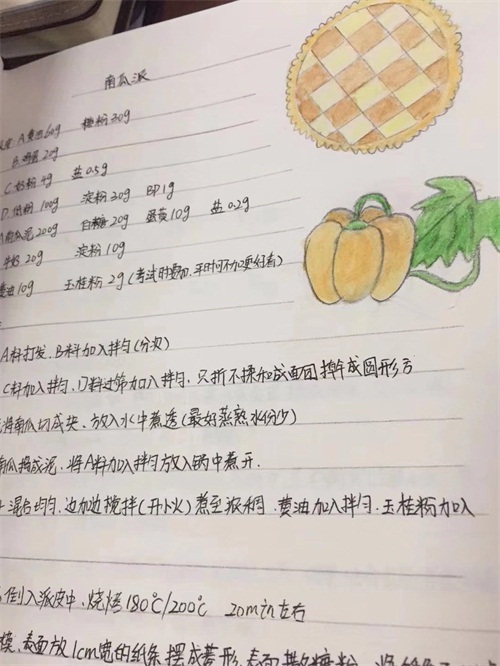 南瓜派
A黄油60g 糖粉30g
B.鸡蛋20g
C.奶粉4g 盐0.5g
D.低粉100g 淀粉30g BP1g
南瓜泥200g 白糖20g 蛋黄10g 盐0.2g
牛奶20g 淀粉10g
黄油10g 玉桂粉2g(考试时要加,平时可不加要好看)
A料打发、B料加入拌匀(分次)
C料加入拌匀、D料过筛加入拌匀、只折不揉和成面团擀成圆形
将南瓜切成块、放入水中煮透(最好蒸熟水份少)
南瓜捣成泥、将A料加入拌匀放入锅中煮开.
混合均匀、边加边搅拌(开小火)煮至浓稠.黄油加入拌匀.玉桂粉加入
倒入派皮中、烧烤180℃/200℃ 20min左右
表面放1cm宽的纸条摆成菱形.表面撒糖粉